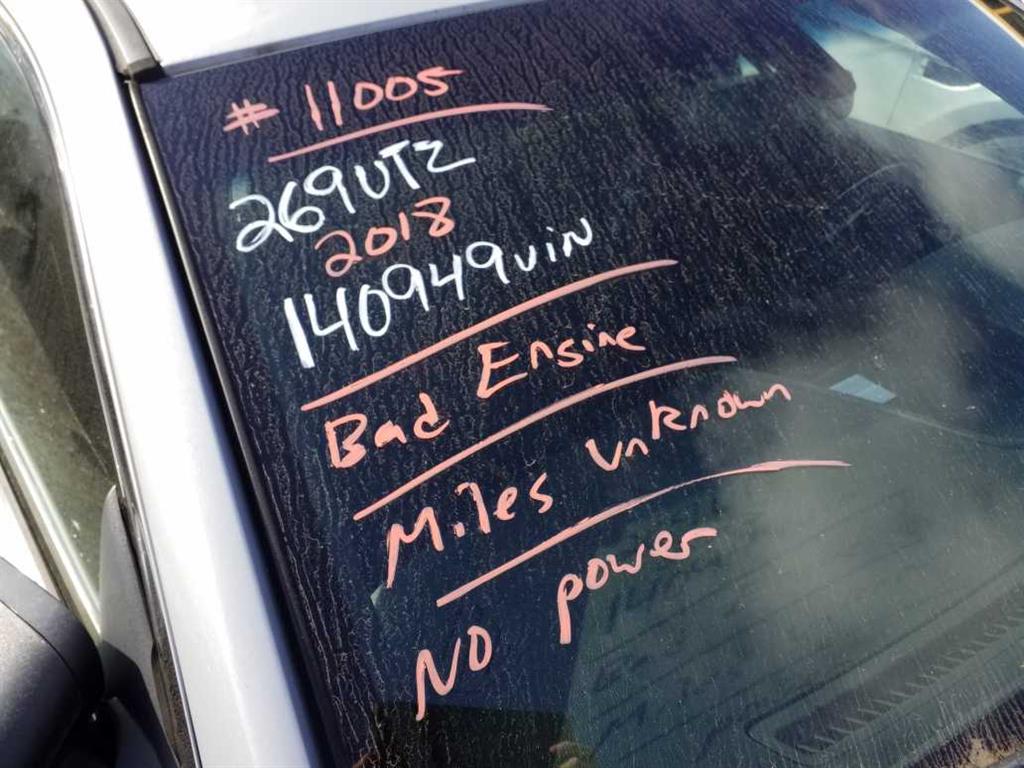 # 11005
269UTZ
2018
140949 VIN
Bad Engine
Miles Unknown
NO power